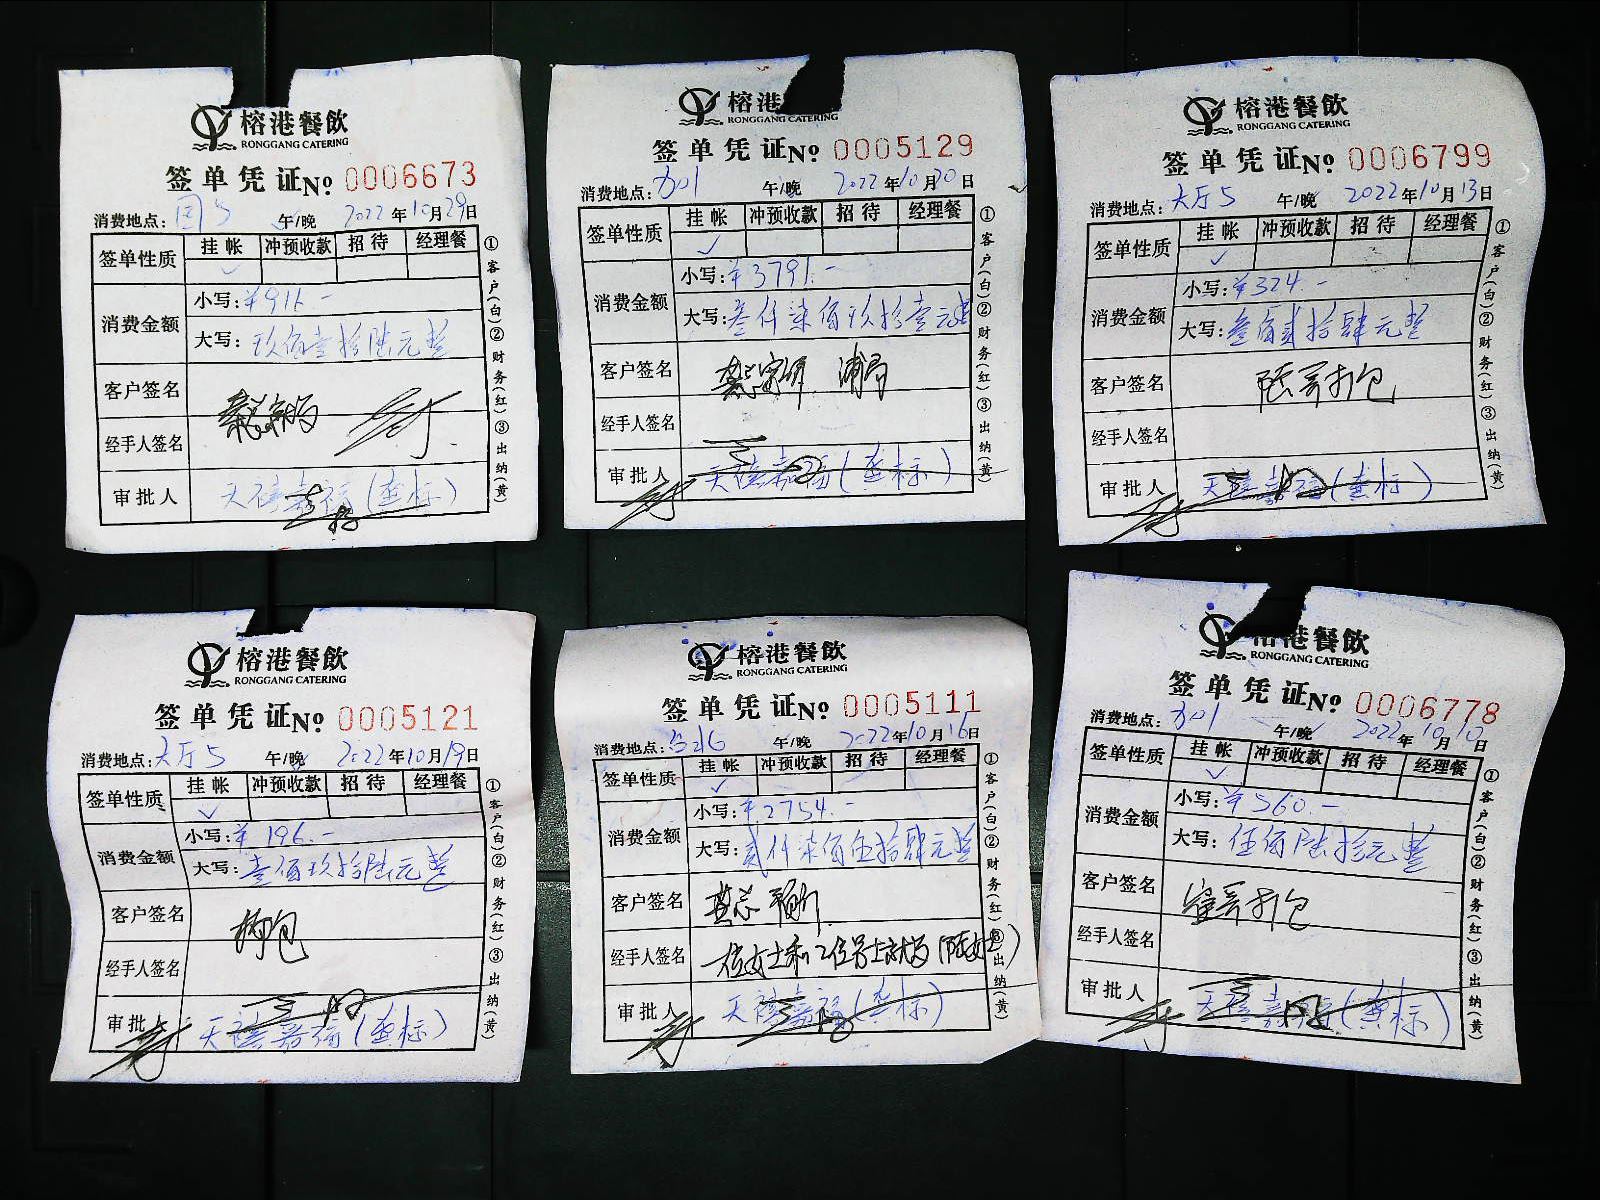 榕港餐飲
RONGGANG CATERING
签单凭证№ 0006673
消费地点: 午/晚 2022年10月29日
签单性质 挂帐 冲预收款 招待 经理餐
消费金额
小写:¥916.-
大写: 玖佰壹拾陆元整
客户签名
经手人签名
审批人 天禧嘉福
①客户(白)②财务(红)③出纳(黄)
榕港
RONGGANG CATERING
签单凭证№ 0005129
消费地点: 午/晚 2022年10月20日
签单性质 挂帐 冲预收款 招待 经理餐
消费金额
小写:¥3791.-
大写:叁仟柒佰玖拾壹元整
客户签名
经手人签名
审批人 天禧嘉福
①客户(白)②财务(红)③出纳(黄)
榕港餐飲
RONGGANG CATERING
签单凭证№ 0006799
消费地点:大厅5 午/晚 2022年10月13日
签单性质 挂帐 冲预收款 招待 经理餐
消费金额
小写:¥324.-
大写:叁佰贰拾肆元整
客户签名 打包
经手人签名
审批人 天禧嘉福
①客户(白)②财务(红)③出纳(黄)
榕港餐飲
RONGGANG CATERING
签单凭证№ 0005121
消费地点:大厅5 午/晚 2022年10月19日
签单性质 挂帐 冲预收款 招待 经理餐
消费金额
小写:¥196.-
大写:壹佰玖拾陆元整
客户签名
经手人签名
审批人 天禧嘉福
①客户(白)②财务(红)③出纳(黄)
榕港餐飲
RONGGANG CATERING
签单凭证№ 0005111
消费地点: 午/晚 2022年10月16日
签单性质 挂帐 冲预收款 招待 经理餐
消费金额
小写:¥2754.-
大写:贰仟柒佰伍拾肆元整
客户签名
经手人签名
审批人 天禧嘉福
①客户(白)②财务(红)③出纳(黄)
榕港餐飲
RONGGANG CATERING
签单凭证№ 0006778
消费地点: 午/晚 2022年10月10日
签单性质 挂帐 冲预收款 招待 经理餐
消费金额
小写:¥560.-
大写:伍佰陆拾元整
客户签名 打包
经手人签名
审批人 天禧嘉福
①客户(白)②财务(红)③出纳(黄)